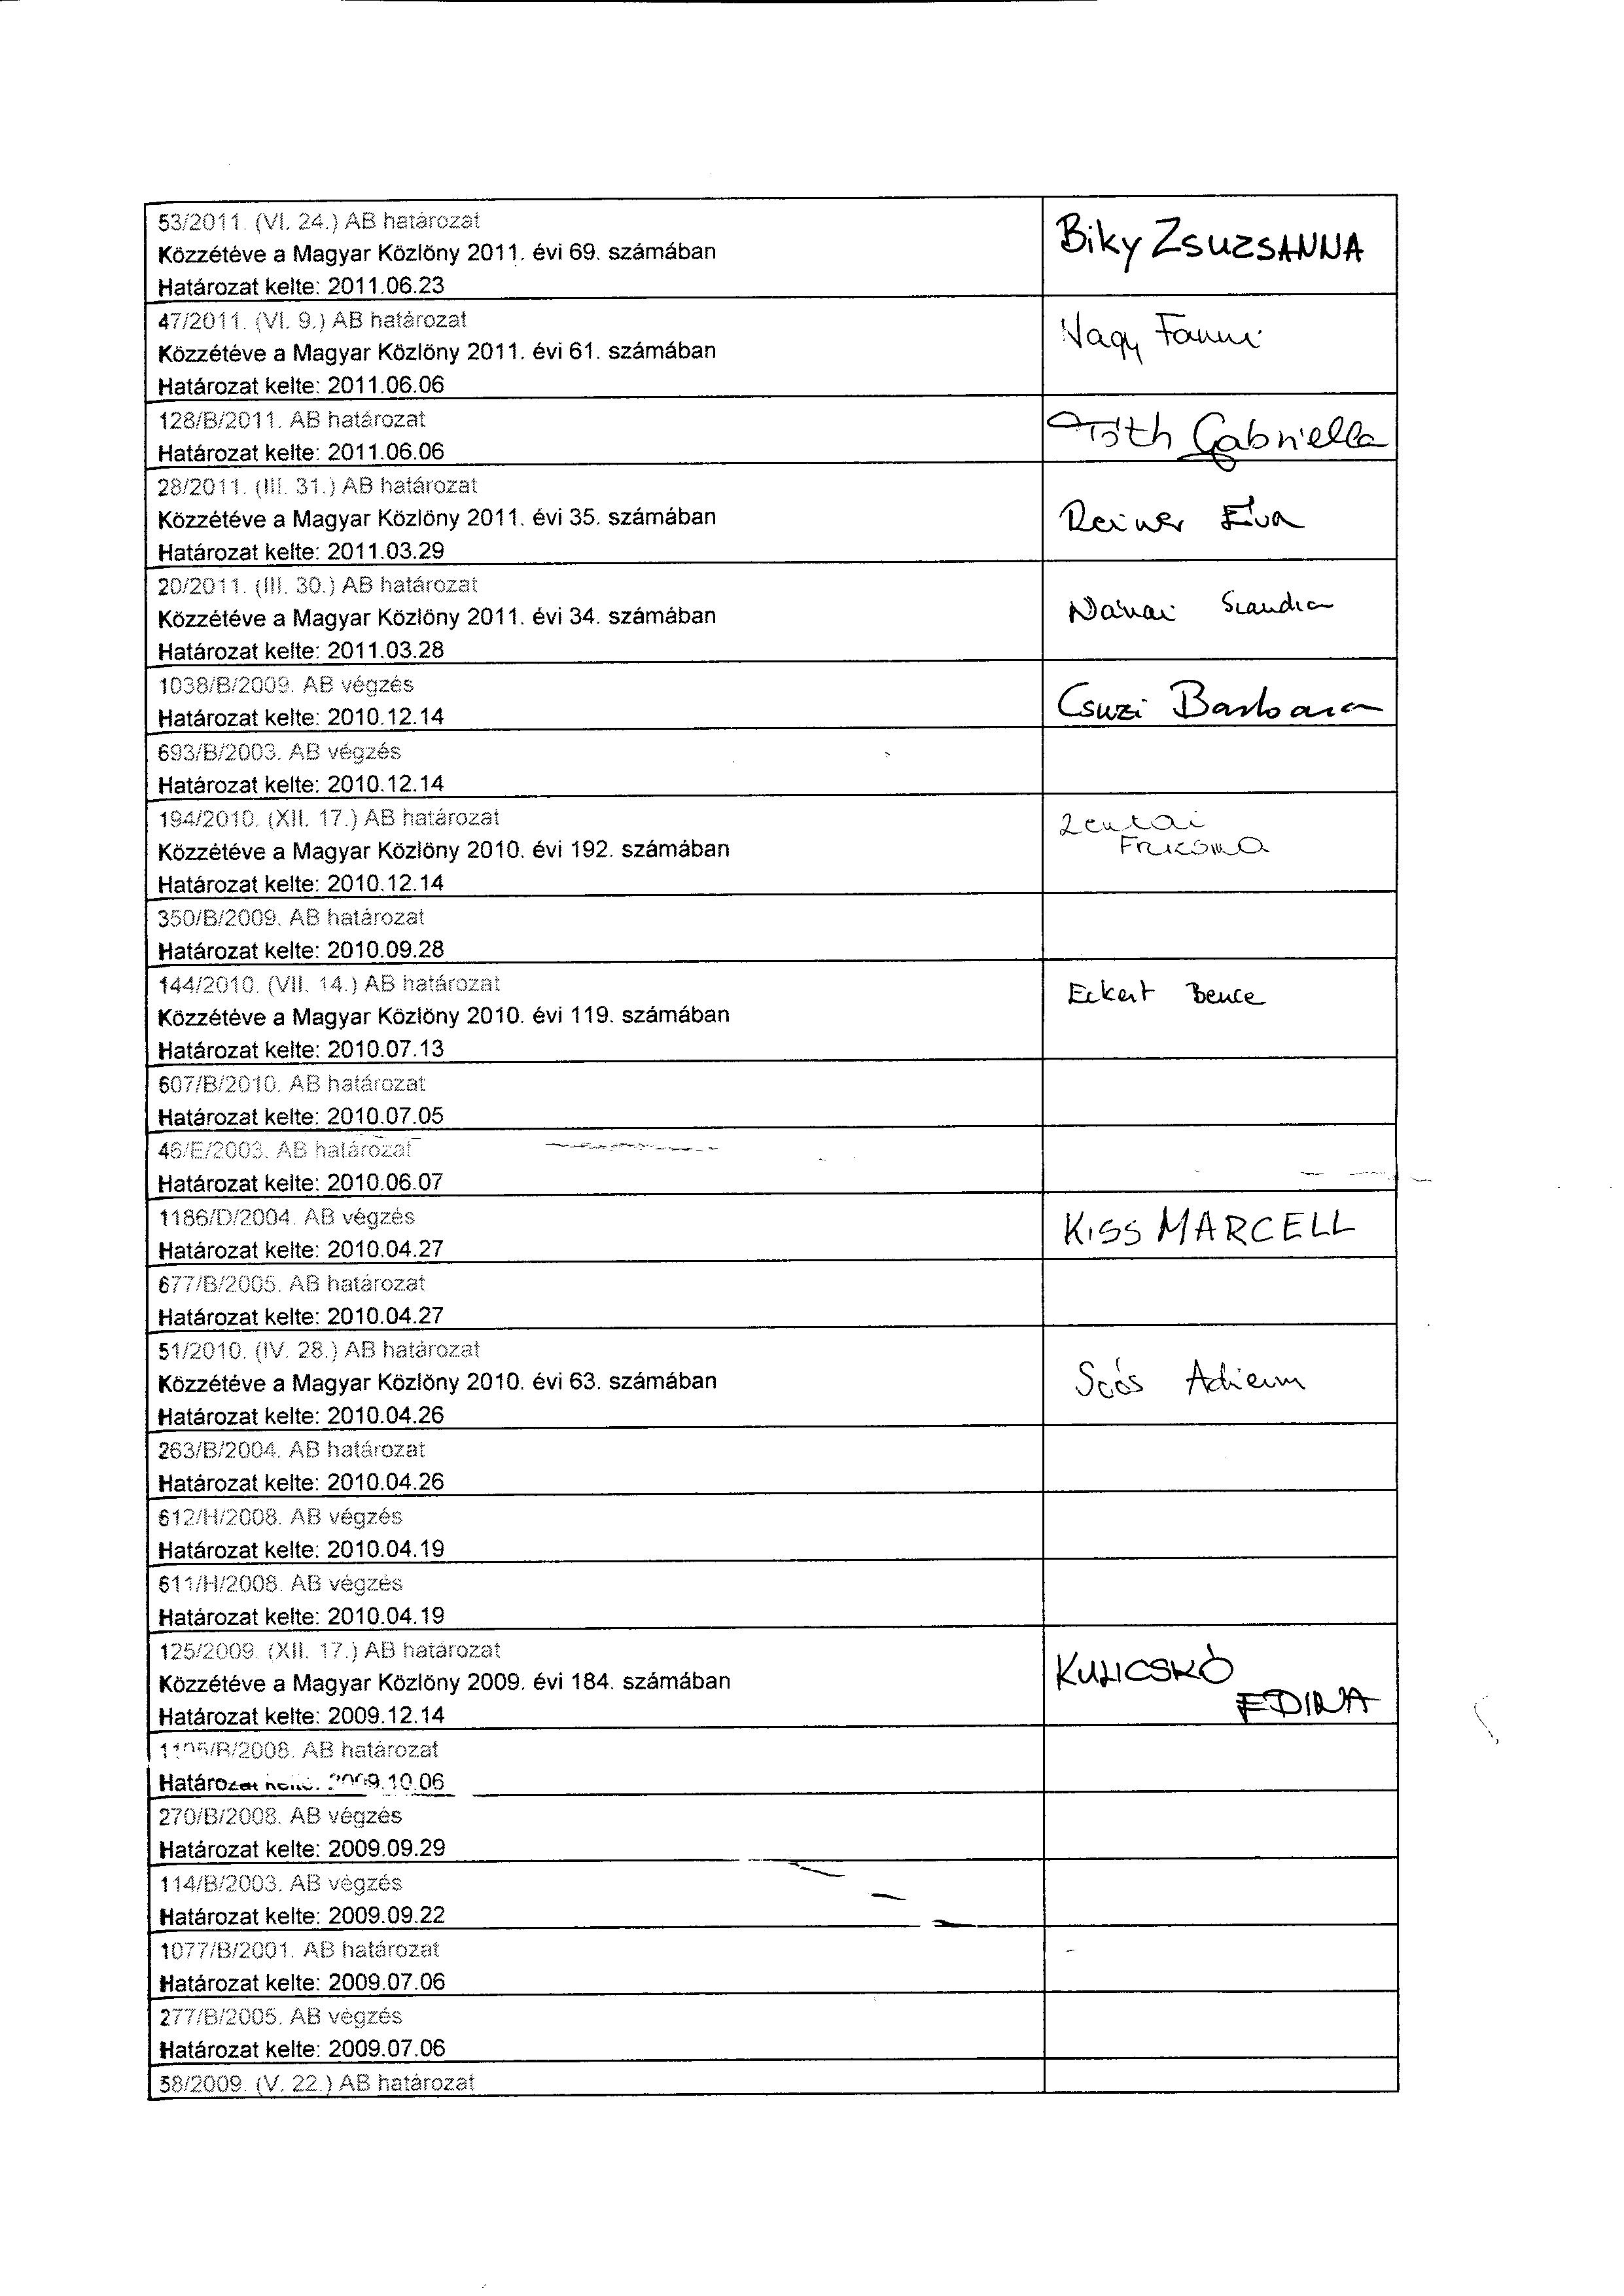 53/2011. (VI. 24.) AB határozat
Közzétéve a Magyar Közlöny 2011. évi 69. számában
Határozat kelte: 2011.06.23
Biky ZSUZSANNA
47/2011. (VI. 9.) AB határozat
Közzétéve a Magyar Közlöny 2011. évi 61. számában
Határozat kelte: 2011.06.06
Nagy Fanni
128/B/2011. AB határozat
Határozat kelte: 2011.06.06
Tóth Gabriella
28/2011. (III. 31.) AB határozat
Közzétéve a Magyar Közlöny 2011. évi 35. számában
Határozat kelte: 2011.03.29
Reiner Éva
20/2011. (III. 30.) AB határozat
Közzétéve a Magyar Közlöny 2011. évi 34. számában
Határozat kelte: 2011.03.28
1038/B/2009. AB végzés
Határozat kelte: 2010.12.14
Csuzi Barbara
693/B/2003. AB végzés
Határozat kelte: 2010.12.14
194/2010. (XII. 17.) AB határozat
Közzétéve a Magyar Közlöny 2010. évi 192. számában
Határozat kelte: 2010.12.14
Zentai
350/B/2009. AB határozat
Határozat kelte: 2010.09.28
144/2010. (VII. 14.) AB határozat
Közzétéve a Magyar Közlöny 2010. évi 119. számában
Határozat kelte: 2010.07.13
Eckert Bence
607/B/2010. AB határozat
Határozat kelte: 2010.07.05
46/E/2003. AB határozat
Határozat kelte: 2010.06.07
1186/D/2004. AB végzés
Határozat kelte: 2010.04.27
KISS MARCELL
677/B/2005. AB határozat
Határozat kelte: 2010.04.27
51/2010. (IV. 28.) AB határozat
Közzétéve a Magyar Közlöny 2010. évi 63. számában
Határozat kelte: 2010.04.26
Soós Adrienn
263/B/2004. AB határozat
Határozat kelte: 2010.04.26
612/H/2008. AB végzés
Határozat kelte: 2010.04.19
611/H/2008. AB végzés
Határozat kelte: 2010.04.19
125/2009. (XII. 17.) AB határozat
Közzétéve a Magyar Közlöny 2009. évi 184. számában
Határozat kelte: 2009.12.14
KULICSKÓ
EDINA
AB határozat
Határozat kelte: 2009.10.06
270/B/2008. AB végzés
Határozat kelte: 2009.09.29
114/B/2003. AB végzés
Határozat kelte: 2009.09.22
1077/B/2001. AB határozat
Határozat kelte: 2009.07.06
277/B/2005. AB végzés
Határozat kelte: 2009.07.06
58/2009. (V. 22.) AB határozat